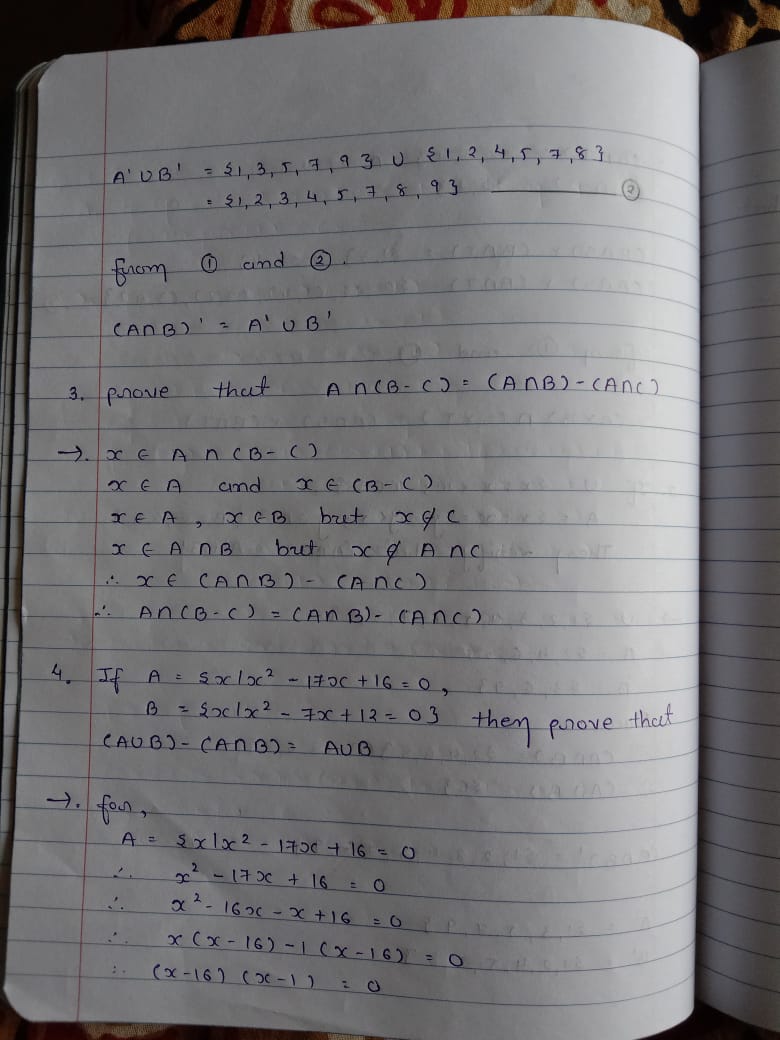 A' ∪ B' = {1, 3, 5, 7, 9} ∪ {1, 2, 4, 5, 7, 8}
= {1, 2, 3, 4, 5, 7, 8, 9} ——— ②
from ① and ②.
(A∩B)' = A' ∪ B'
3. prove that A ∩ (B - C) = (A∩B) - (A∩C)
→. x ∈ A ∩ (B - C)
x ∈ A and x ∈ (B - C)
x ∈ A, x ∈ B but x ∉ C
x ∈ A ∩ B but x ∉ A ∩ C
∴ x ∈ (A∩B) - (A∩C)
∴ A∩(B - C) = (A∩B) - (A∩C)
4. If A = {x|x² - 17x + 16 = 0,
B = {x|x² - 7x + 12 = 0} then prove that
(A∪B) - (A∩B) = A∪B
→. for,
A = {x|x² - 17x + 16 = 0
∴ x² - 17x + 16 = 0
∴ x² - 16x - x + 16 = 0
∴ x(x - 16) - 1(x - 16) = 0
∴ (x - 16) (x - 1) = 0